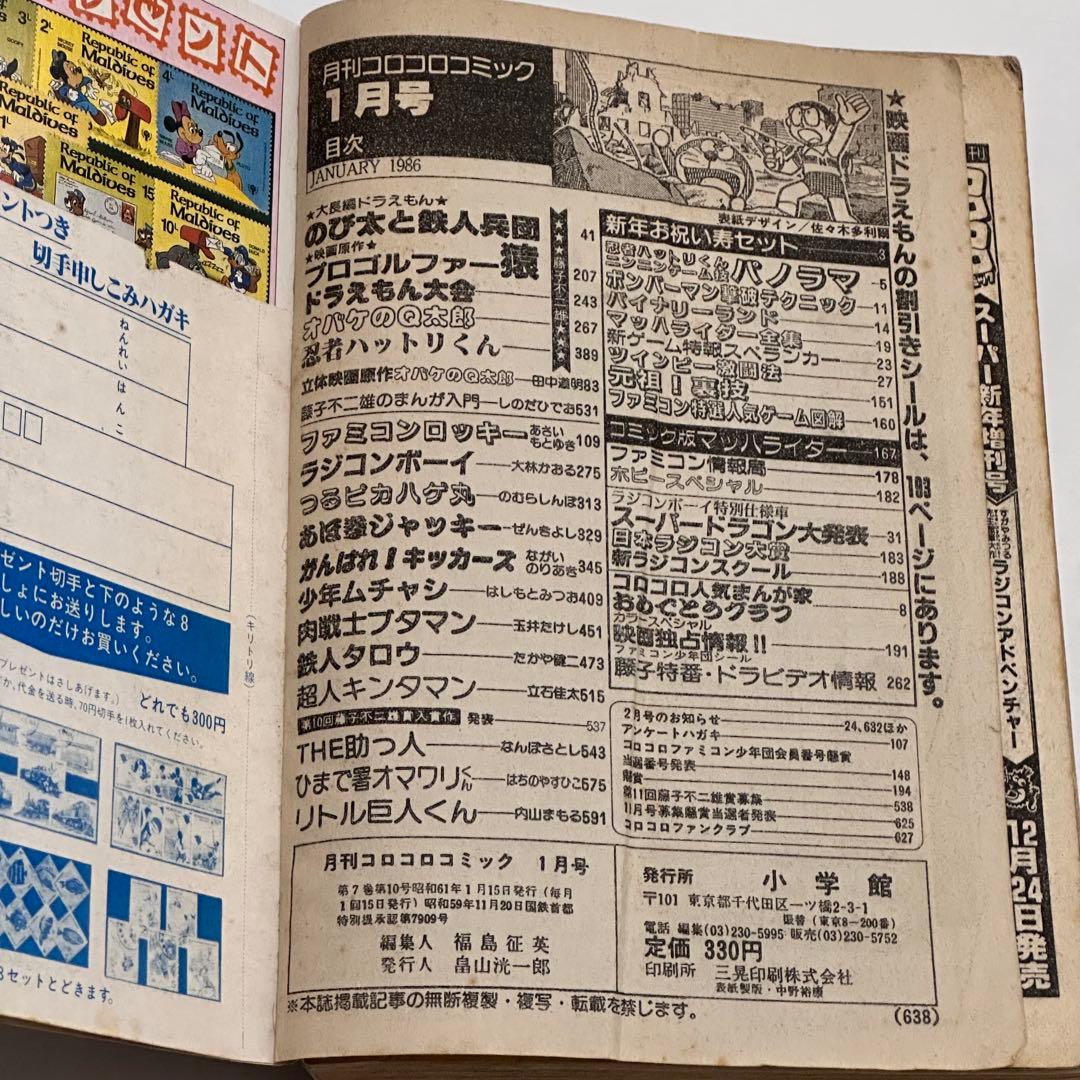 ゼント
3L
2L
Republic of
Maldives
4L
Republic of
Maldives
Republic of
Maldives
1L
Republic of
Maldives
15L
Republic of
Maldives
10L
ントつき
切手申しこみハガキ
ねんれい
はんこ
ゼント切手と下のような8
しょにお送りします。
しいのだけお買いください。
プレゼントはさしあげます。)
どれでも300円
か、代金を送る時、70円切手を1枚入れてください。
3セットとどきます。
(キリトリ線)
月刊コロコロコミック
1月号
目次
JANUARY 1986
表紙デザイン/佐々木多利爾
★映画ドラえもんの割引きシールは、193ページにあります。
★大長編ドラえもん★
のび太と鉄人兵団 41
★映画原作★
プロゴルファー猿 207
ドラえもん大会 243
オバケのQ太郎 267
忍者ハットリくん 389
★★★★藤子不二雄★★★★
立体映画原作オバケのQ太郎—田中道明83
藤子不二雄のまんが入門—しのだひでお531
ファミコンロッキー—あさいもとゆき109
ラジコンボーイ—大林かおる275
つるピカハゲ丸—のむらしんぼ313
あほ拳ジャッキー—ぜんきよし329
がんばれ!キッカーズ ながいのりあき345
少年ムチャシ—はしもとみつお409
肉戦士ブタマン—玉井たけし451
鉄人タロウ—たかや健二473
超人キンタマン—立石佳太515
第10回藤子不二雄賞入賞作 発表—537
THE助っ人—なんぽさとし543
ひまで署オマワリくん—はちのやすひこ575
リトル巨人くん—内山まもる591
新年お祝い寿セット—3
忍者ハットリくん
ニンニンゲーム技パノラマ—5
ボンバーマン撃破テクニック—11
バイナリーランド—14
マッハライダー全集—19
新ゲーム特報スペランカー—23
ツインビー激闘法—27
元祖!裏技—151
ファミコン特選人気ゲーム図解—160
コミック版マッハライダー—167
ファミコン情報局—178
ホビースペシャル—182
ラジコンボーイ特別仕様車
スーパードラゴン大発表—31
日本ラジコン大賞—183
新ラジコンスクール—188
コロコロ人気まんが家
おめでとうグラフ—8
カラースペシャル
映画独占情報!!—191
ファミコン少年団シール
藤子特番・ドラビデオ情報 262
2月号のお知らせ—24,632ほか
アンケートハガキ—107
コロコロファミコン少年団会員番号懸賞
当選番号発表—148
懸賞—194
第11回藤子不二雄賞募集—538
11月号募集懸賞当選者発表—625
コロコロファンクラブ—627
月刊コロコロコミック 1月号
第7巻第10号昭和61年1月15日発行(毎月
1回15日発行)昭和59年11月20日国鉄首都
特別扱承認第7909号
編集人 福島征英
発行人 畠山洸一郎
発行所 小学館
〒101 東京都千代田区一ツ橋2-3-1
振替(東京8—200番)
電話 編集(03)230-5995 販売(03)230-5752
定価 330円
印刷所 三晃印刷株式会社
表紙製版・中野裕康
※本誌掲載記事の無断複製・複写・転載を禁じます。
(638)
スーパー新年増刊号
ラジコンアドベンチャー
12月24日発売